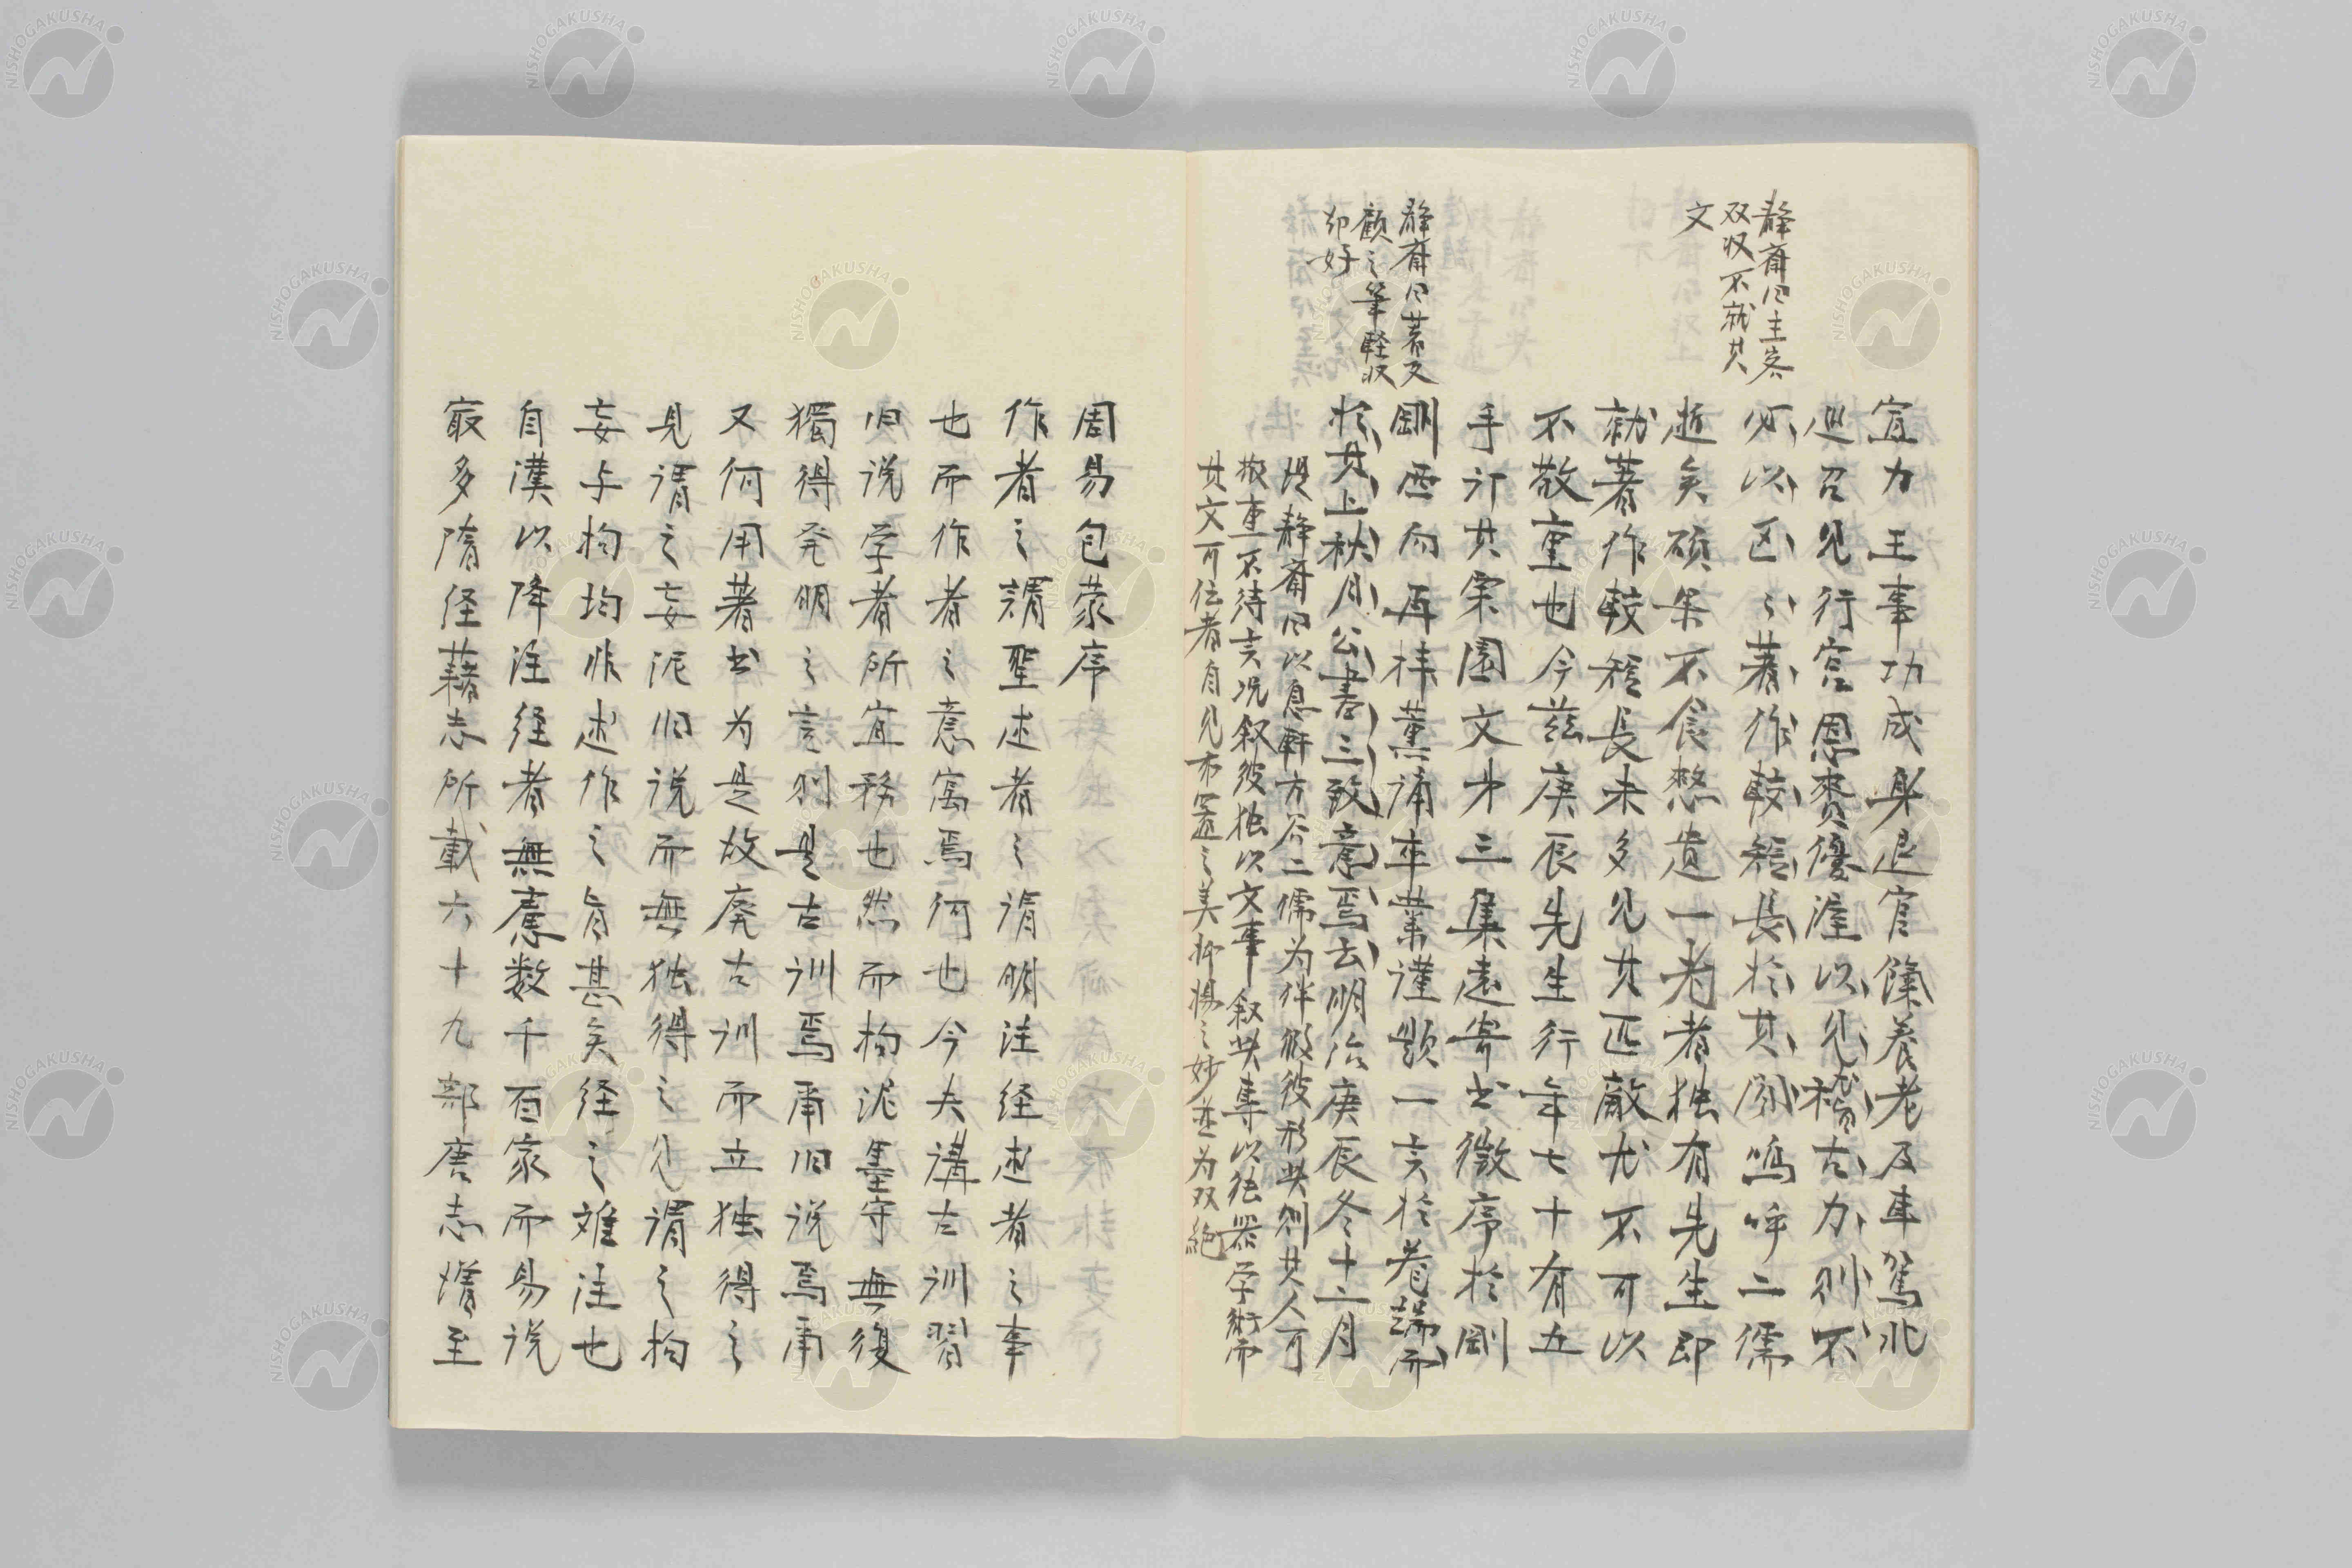 静斎曰主客
双収不就其
文
静斎曰著文
顧之筆軽収
却好
宣力王事功成身退官餼養老及車駕北
巡召見行宮恩賚優渥以見稽古力則不
必以区々著作較短長於其間嗚呼二儒
逝矣碩果不食憖遺一老者独有先生即
就著作較短長未多見其匹敵尤不可以
不敬重也今茲庚辰先生行年七十有五
手訂其寧固文第三集遠寄書徴序於剛
剛西向再拝薫誦卒業謹題一言於巻端而
於其上秋月公書三致意焉云明治庚辰冬十二月
堤静斎曰以息軒方谷二儒為伴做彼形此則其人可
敬重不待言況叙彼独以文事叙此専以徳器学術而
其文可伝者自見布置之美抑揚之妙並為双絶
周易包蒙序
作者之謂聖述者之謂明注経述者之事
也而作者之意寓焉何也今夫講古訓習
旧説学者所宜務也然而拘泥墨守無復
獨得発明之言則是古訓焉耳旧説焉耳
又何用著書為是故廃古訓而立独得之
見謂之妄泥旧説而無独得之見謂之拘
妄与拘均非述作之旨甚矣経之難注也
自漢以降注経者無慮数千百家而易説
最多隋経籍志所載六十九部唐志隋至